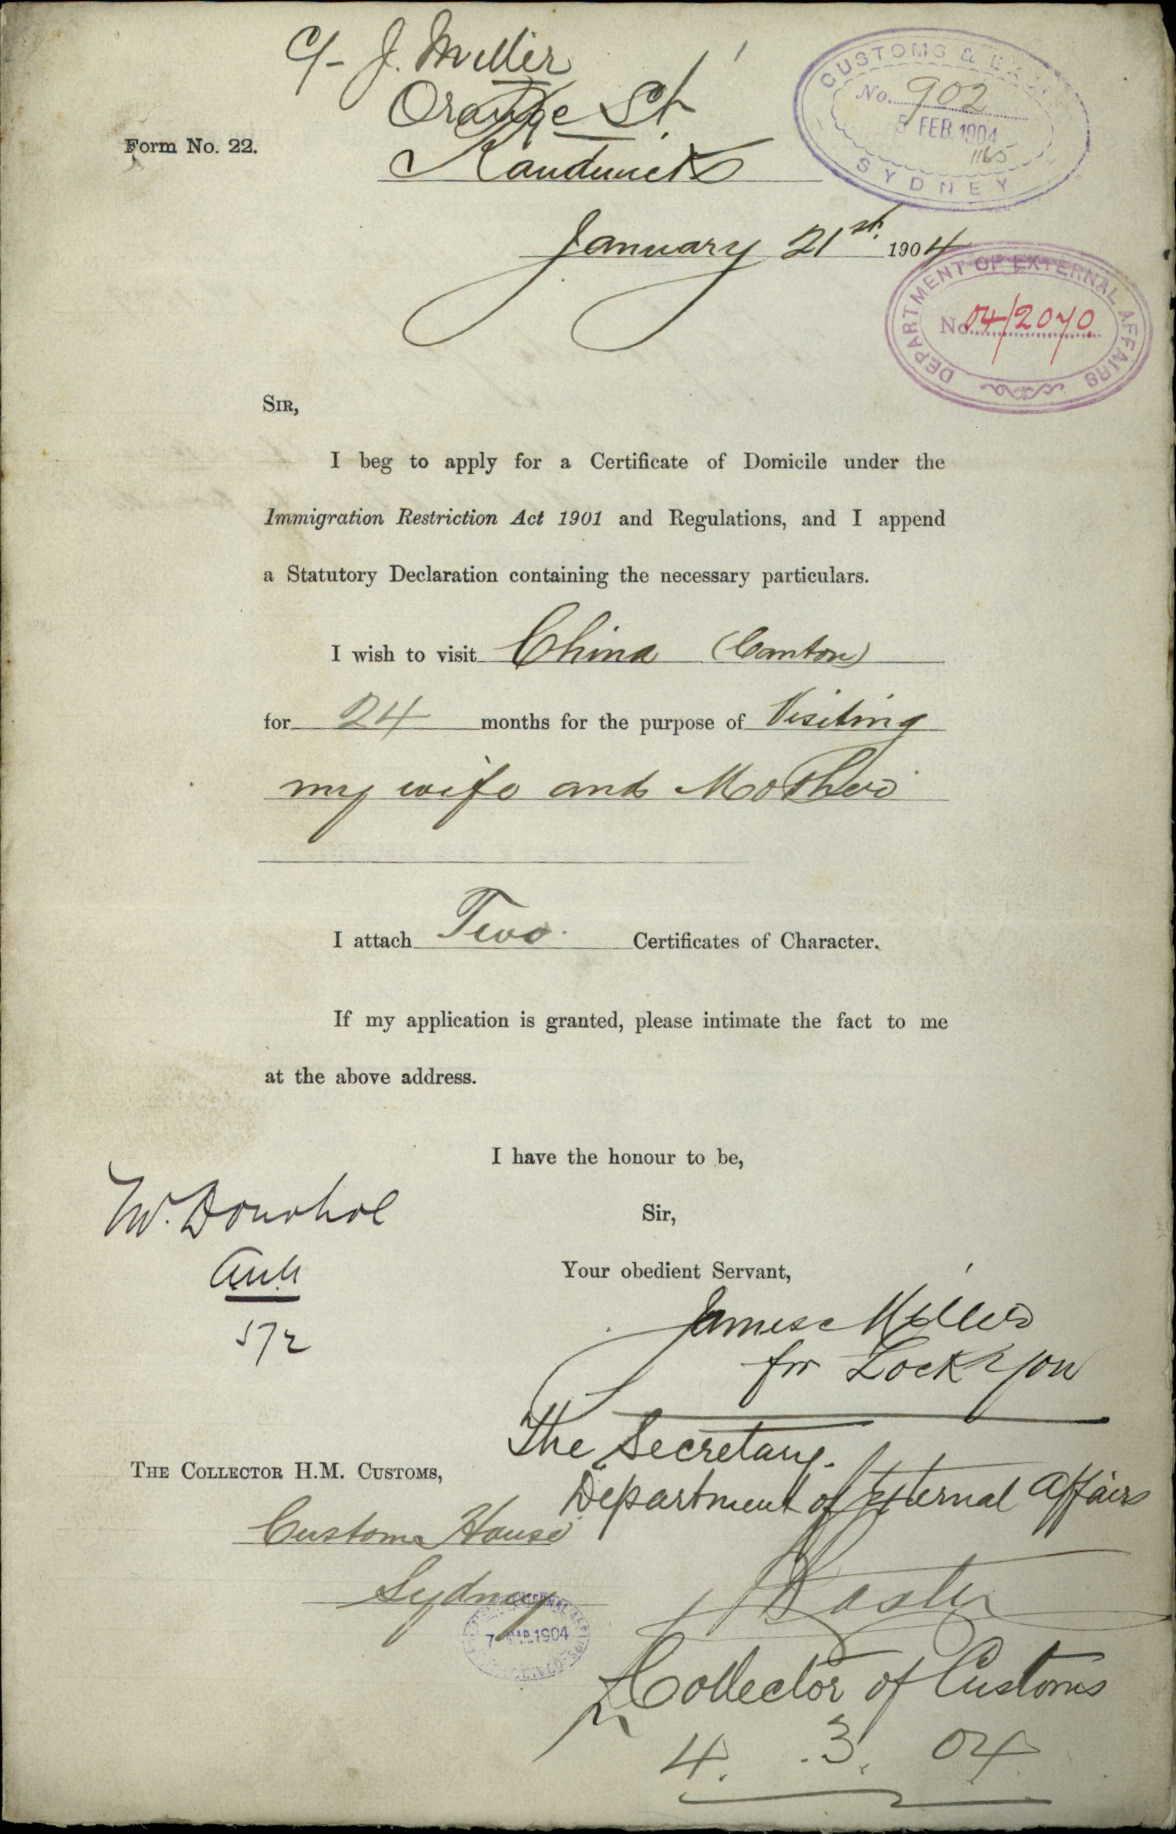 C/- J. Miller
Orange St.
Randwick
Form No. 22.
CUSTOMS &
No. 902
5 FEB 1904
1165
SYDNEY
January 21st. 1904
DEPARTMENT OF EXTERNAL AFFAIRS
No. 04/2070
SIR,
I beg to apply for a Certificate of Domicile under the
Immigration Restriction Act 1901 and Regulations, and I append
a Statutory Declaration containing the necessary particulars.
I wish to visit China (Canton)
for 24 months for the purpose of Visiting
my wife and Mother
I attach Two Certificates of Character.
If my application is granted, please intimate the fact to me
at the above address.
I have the honour to be,
Sir,
Your obedient Servant,
James Miller
for Lock Yow
Mr. Donohoe
5/2
The Secretary.
Department of External Affairs
THE COLLECTOR H.M. CUSTOMS,
Customs House
Sydney
7 MAR 1904
Collector of Customs
4. .3. 04